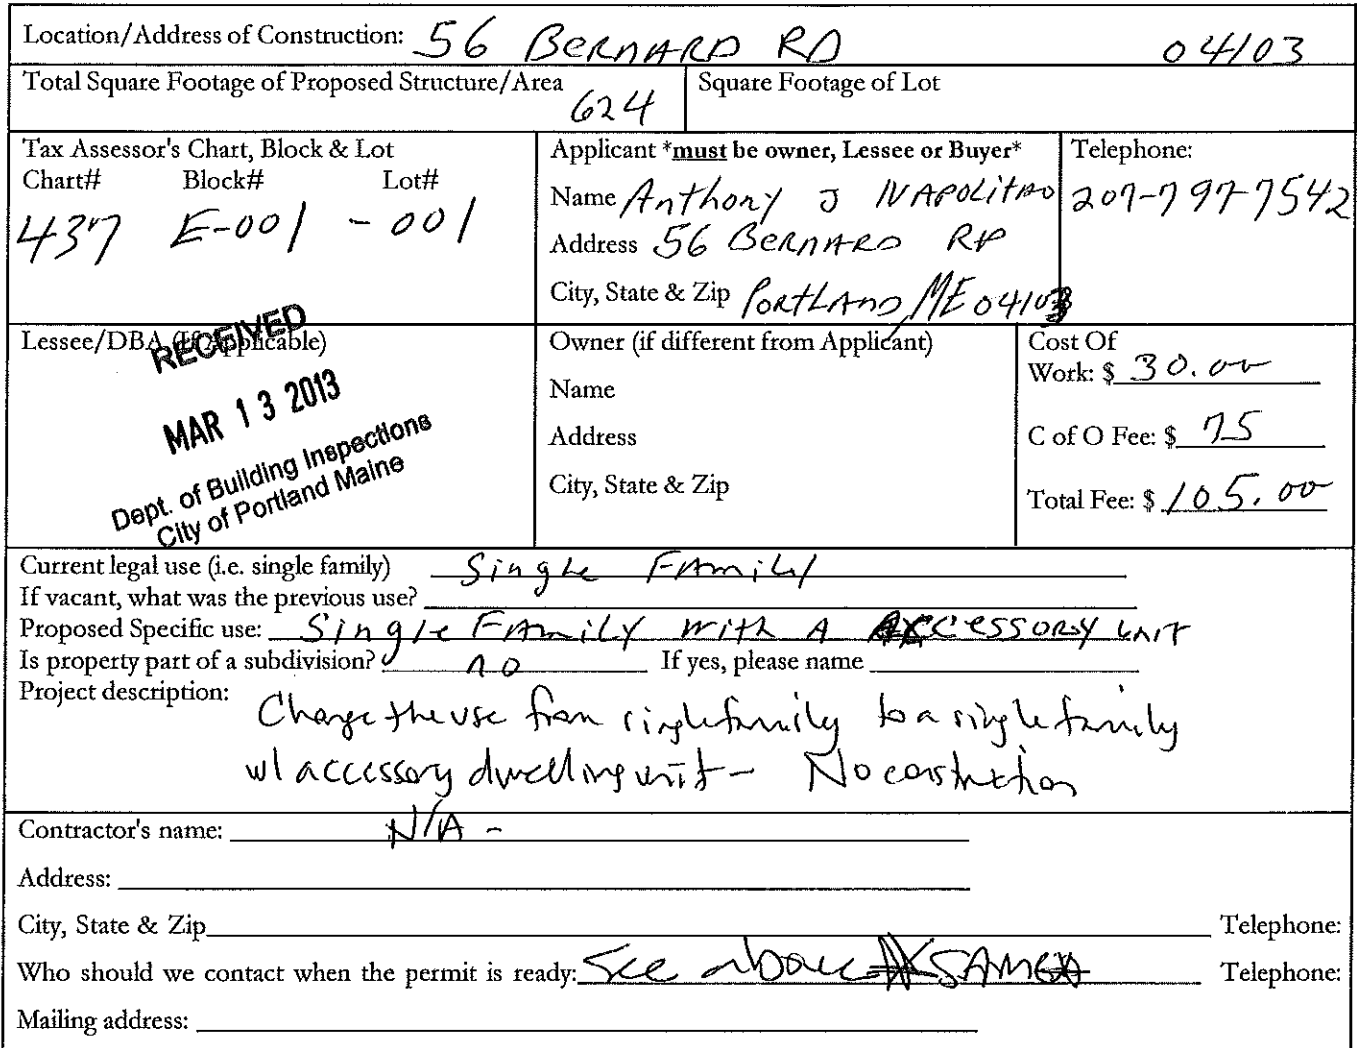 Location/Address of Construction: 56 BERNARD RD 04103
Total Square Footage of Proposed Structure/Area 624
Square Footage of Lot
Tax Assessor's Chart, Block & Lot
Chart# Block# Lot#
437 E-001 - 001
Applicant *must be owner, Lessee or Buyer*
Name Anthony J NAPOLITAO
Address 56 BERNARD RD
City, State & Zip PORTLAND, ME 04103
Telephone:
207-797-7542
Lessee/DBA (If Applicable)
RECEIVED
MAR 13 2013
Dept. of Building Inspections
City of Portland Maine
Owner (if different from Applicant)
Name
Address
City, State & Zip
Cost Of
Work: $ 30.00
C of O Fee: $ 75
Total Fee: $ 105.00
Current legal use (i.e. single family) Single FAMILY
If vacant, what was the previous use?
Proposed Specific use: Single FAMILY WITH A ACCESSORY UNIT
Is property part of a subdivision? no If yes, please name
Project description:
Change the use from single family to a single family
w/ accessory dwelling unit - No construction
Contractor's name: N/A -
Address:
City, State & Zip Telephone:
Who should we contact when the permit is ready: See above SAME Telephone:
Mailing address: